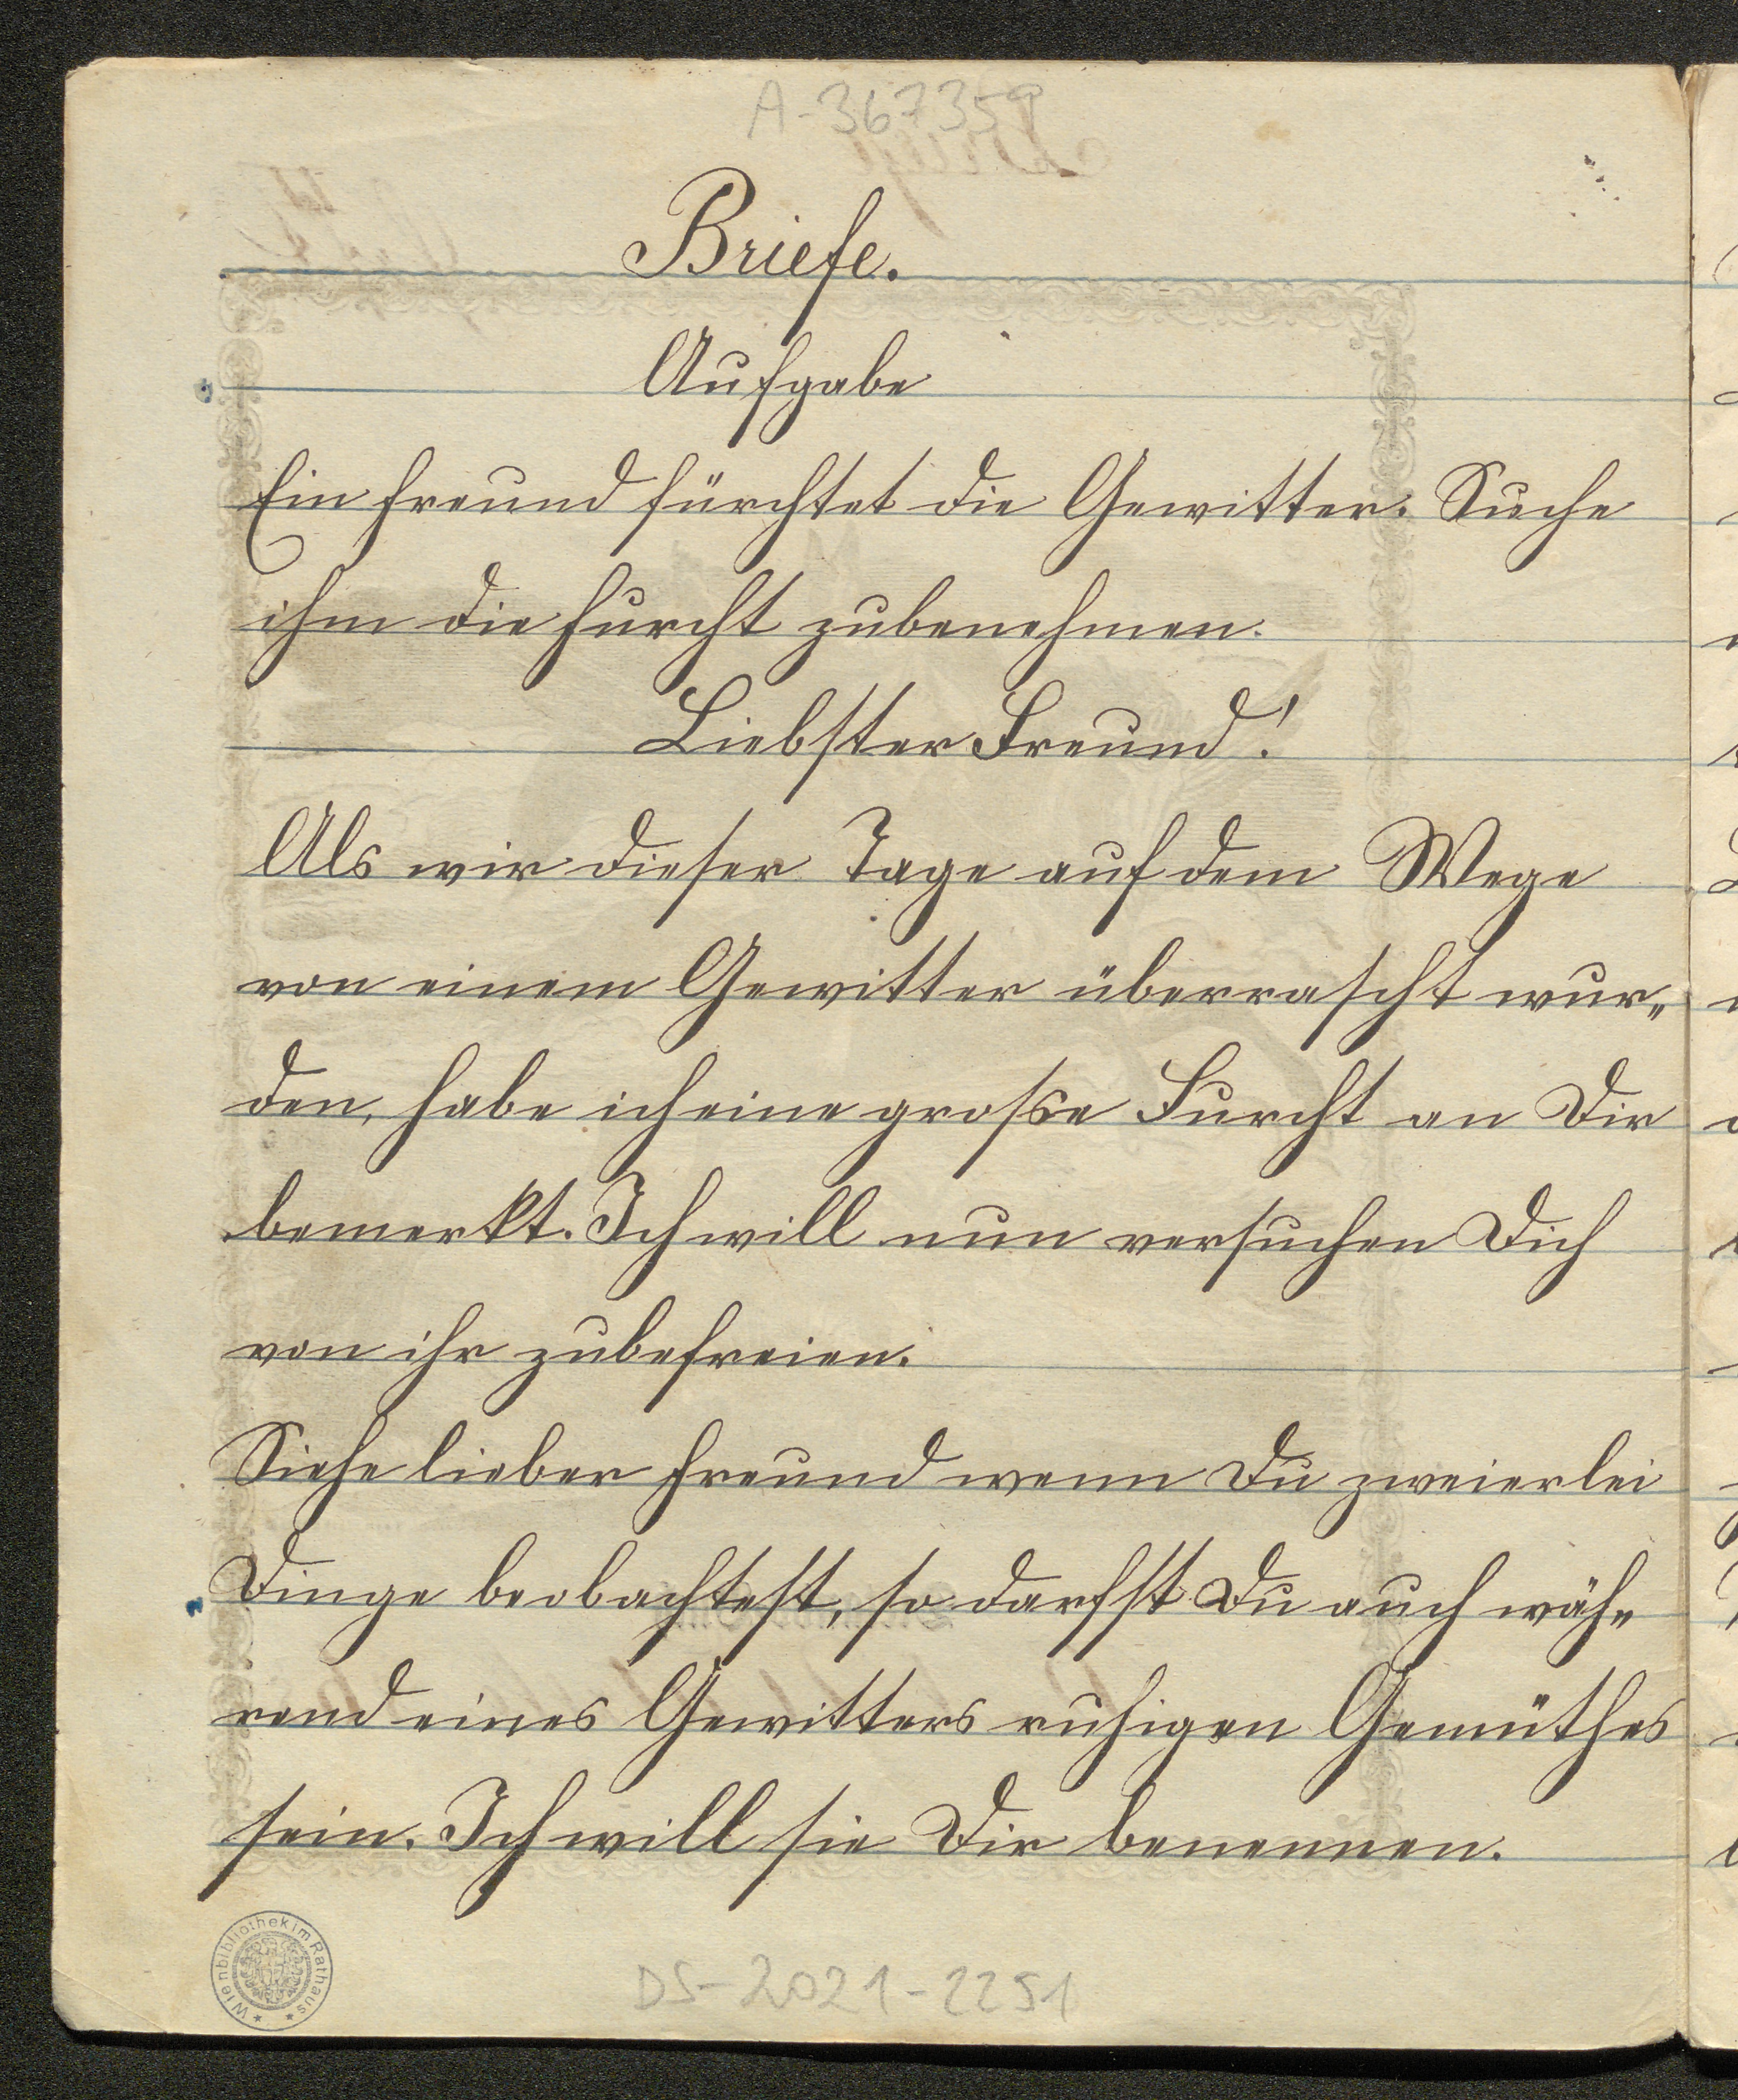 A-367359
Briefe.
Aufgabe
Ein Freund fürchtet die Gewitter. Suche
ihm die Furcht zubenehmen.
Liebster Freund!
Als wir dieser Tage auf dem Wege
von einem Gewitter überrascht wur„
den, habe ich eine große Furcht an Dir
bemerkt. Ich will nun versuchen Dich
von ihr zubefreien.
Siehe lieber Freund wenn Du zweierlei
Dinge beobachtest, so darfst Du auch wäh„
rend eines Gewitters ruhigen Gemüthes
sein. Ich will sie Dir benennen.
Wienbibliothek im Rathaus
DS-2021-2251